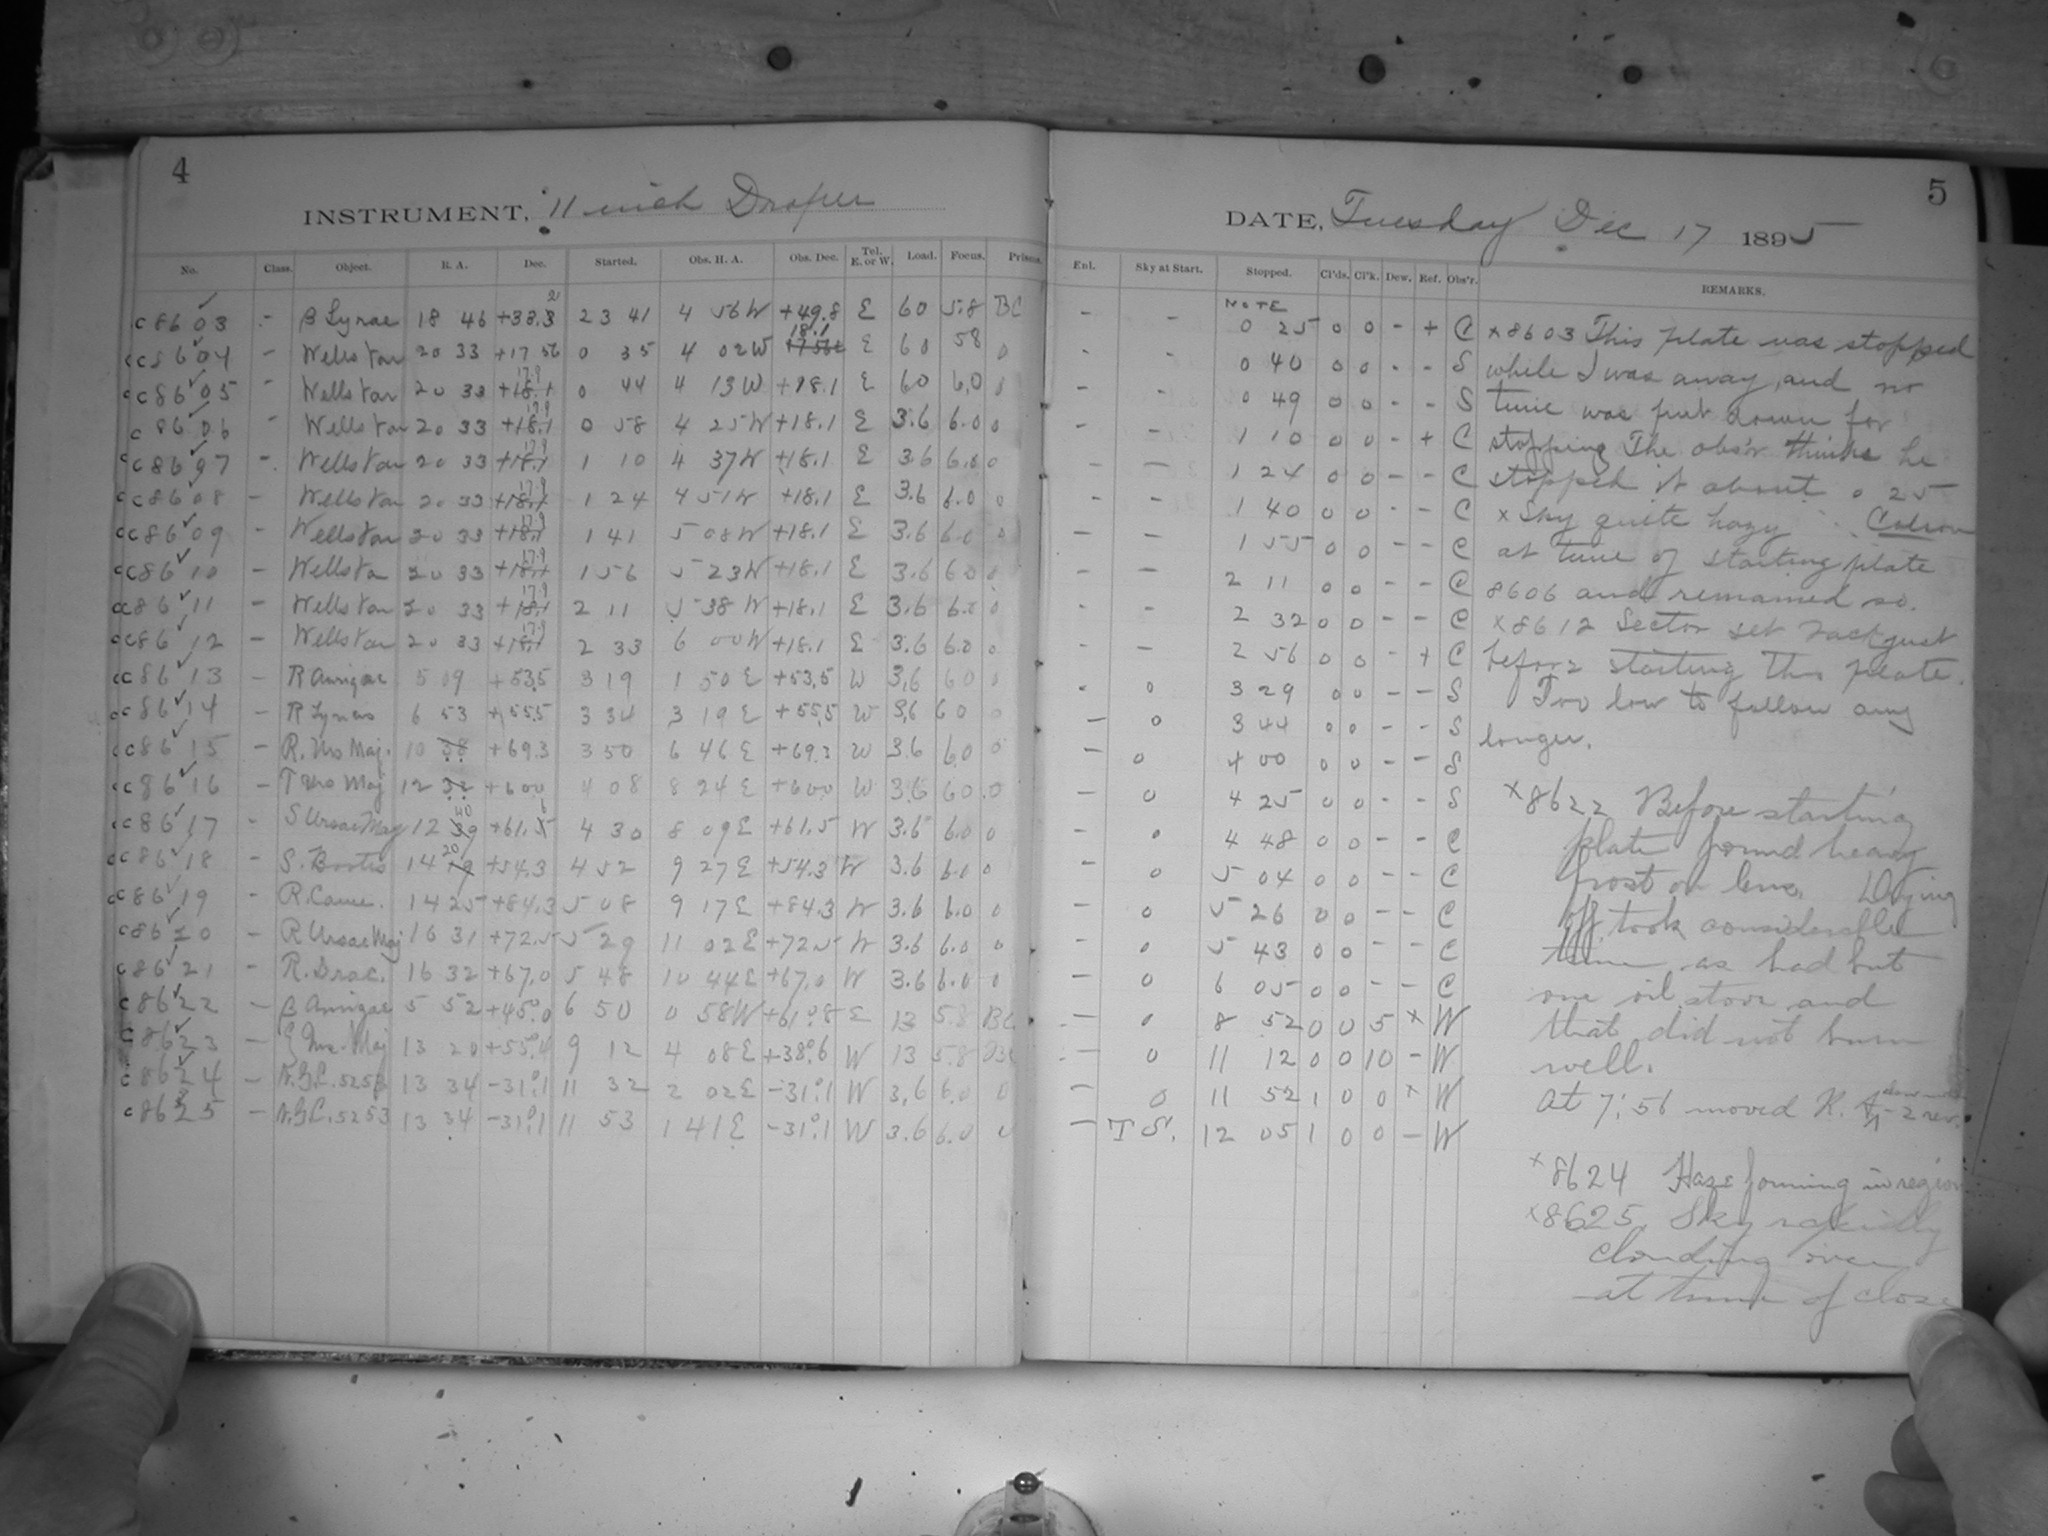 4
INSTRUMENT, 11 inch Draper
No. Class. Object. R. A. Dec. Started. Obs. H. A. Obs. Dec. Tel. E. or W. Load. Focus. Prisms.
c8603 - β Lyrae 18 46 +38.3 23 41 4 56W +49.8 E 60 5.8 BC
c8604 - Wells Var 20 33 +17 56 0 35 4 02W 18.1 E 60 58 0
c8605 - Wells Var 20 33 +18.1 17.9 0 44 4 13W +18.1 E 60 6.0 0
c8606 - Wells Var 20 33 +18.1 17.9 0 58 4 25W +18.1 E 3.6 6.0 0
c8607 - Wells Var 20 33 +18.1 17.9 1 10 4 37W +18.1 E 3.6 6.0 0
c8608 - Wells Var 20 33 +18.1 17.9 1 24 4 51W +18.1 E 3.6 6.0 0
c8609 - Wells Var 20 33 +18.1 17.9 1 41 5 08W +18.1 E 3.6 6.0 0
c8610 - Wells Va 20 33 +18.1 17.9 1 56 5 23W +18.1 E 3.6 6.0 0
c8611 - Wells Var 20 33 +18.1 17.9 2 11 5 38W +18.1 E 3.6 6.0 0
c8612 - Wells Var 20 33 +18.1 17.9 2 33 6 00W +18.1 E 3.6 6.0 0
c8613 - R Aurigae 5 09 +53.5 3 19 1 50E +53.5 W 3.6 6.0 0
c8614 - R Lyncis 6 53 +55.5 3 34 3 19E +55.5 W 3.6 6.0 0
c8615 - R. Urs Maj. 10 38 +69.3 3 50 6 46E +69.3 W 3.6 6.0 0
c8616 - T Urs Maj 12 32 +60.0 4 08 8 24E +60.0 W 3.6 6.0 0
c8617 - S Ursae Maj 12 39 40 +61.5 6 4 30 8 09E +61.5 W 3.6 6.0 0
c8618 - S. Bootis 14 19 20 +54.3 4 52 9 27E +54.3 W 3.6 6.0 0
c8619 - R. Came. 14 25 +84.3 5 08 9 17E +84.3 W 3.6 6.0 0
c8620 - R Ursae Maj 16 31 +72.5 5 29 11 02E +72.5 W 3.6 6.0 0
c8621 - R. Drac. 16 32 +67.0 5 48 10 44E +67.0 W 3.6 6.0 0
c8622 - β Aurigae 5 52 +45.0 6 50 0 58W +61°.8 E 13 5.8 BC
c8623 - ζ Urs. Maj 13 20 +55°.4 9 12 4 08E +38°.6 W 13 5.8 BC
c8624 - N.G.C. 5253 13 34 -31°.1 11 32 2 02E -31°.1 W 3.6 6.0 0
c8625 - N.G.C. 5253 13 34 -31°.1 11 53 1 41E -31°.1 W 3.6 6.0 0
5
DATE, Tuesday Dec 17 1895
Enl. Sky at Start. Stopped. Cl'ds. Cl'k. Dew. Ref. Obs'r. REMARKS.
NOTE
- - 0 25 0 0 - + C
- - 0 40 0 0 - - S
- - 0 49 0 0 - - S
- - 1 10 0 0 - + C
- - 1 24 0 0 - - C
- - 1 40 0 0 - - C
- - 1 55 0 0 - - C
- - 2 11 0 0 - - C
- - 2 32 0 0 - - C
- - 2 56 0 0 - + C
- 0 3 29 0 0 - - S
- 0 3 44 0 0 - - S
- 0 4 00 0 0 - - S
- 0 4 25 0 0 - - S
- 0 4 48 0 0 - - C
- 0 5 04 0 0 - - C
- 0 5 26 0 0 - - C
- 0 5 43 0 0 - - C
- 0 6 05 0 0 - - C
- 0 8 52 0 0 5 x W
- 0 11 12 0 0 10 - W
- 0 11 52 1 0 0 x W
- T S. 12 05 1 0 0 - W
x8603 This plate was stopped
while I was away, and no
time was put down for
stopping The obs'r thinks he
stopped it about 0 25
x Sky quite hazy
at time of starting plate
8606 and remained so.
x8612 Sector set back just
before starting this plate.
Too low to follow any
longer.
x8622 Before starting
plate found heavy
frost on lens. Drying
off took considerable
time as had but
one oil stove and
that did not burn
well.
At 7:56 moved R. A. 2 rev.
x8624 Haze forming in region
x8625. Sky rapidly
clouding over
at time of close